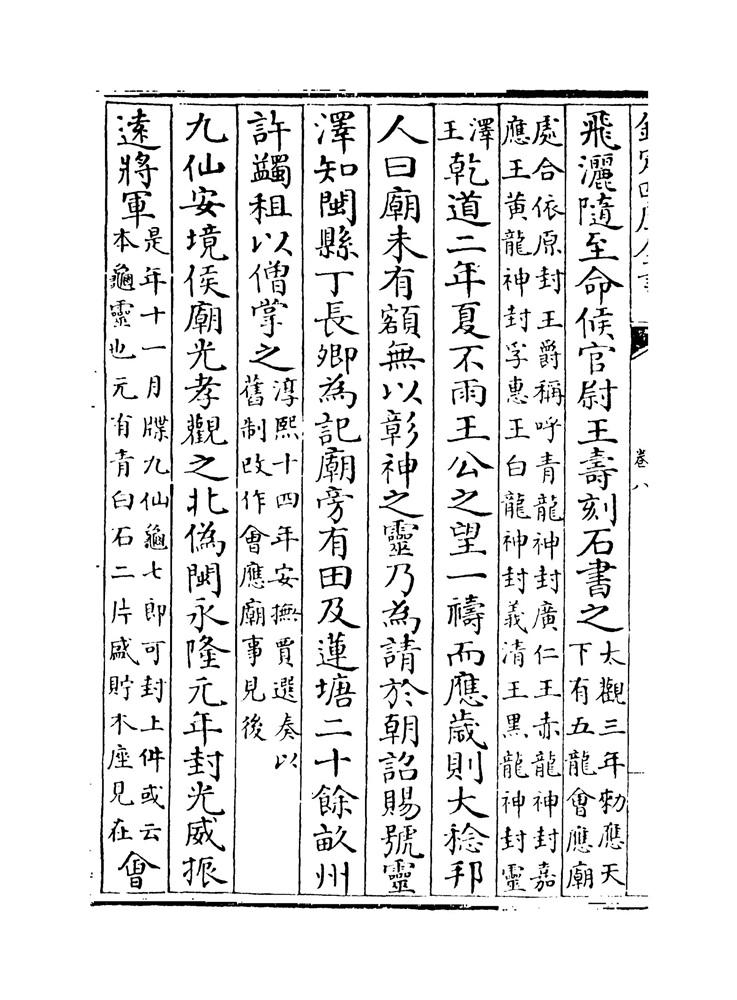 卷八
飛灑隨至命候官尉王壽刻石書之
太觀三年勅應天
下有五龍會應廟
處合依原封王爵稱呼青龍神封廣仁王赤龍神封嘉
應王黄龍神封孚惠王白龍神封義清王黑龍神封靈
澤
王
乾道二年夏不雨王公之望一禱而應歲則大稔邦
人曰廟未有額無以彰神之靈乃為請於朝詔賜號靈
澤知閩縣丁長卿為記廟旁有田及蓮塘二十餘畝州
許蠲租以僧掌之
淳熙十四年安撫賈選奏以
舊制改作會應廟事見後
九仙安境侯廟光孝觀之北偽閩永隆元年封光威振
遠將軍
是年十一月牒九仙龜七郎可封上件或云
本龜靈也元有青白石二片盛貯木座見在
會